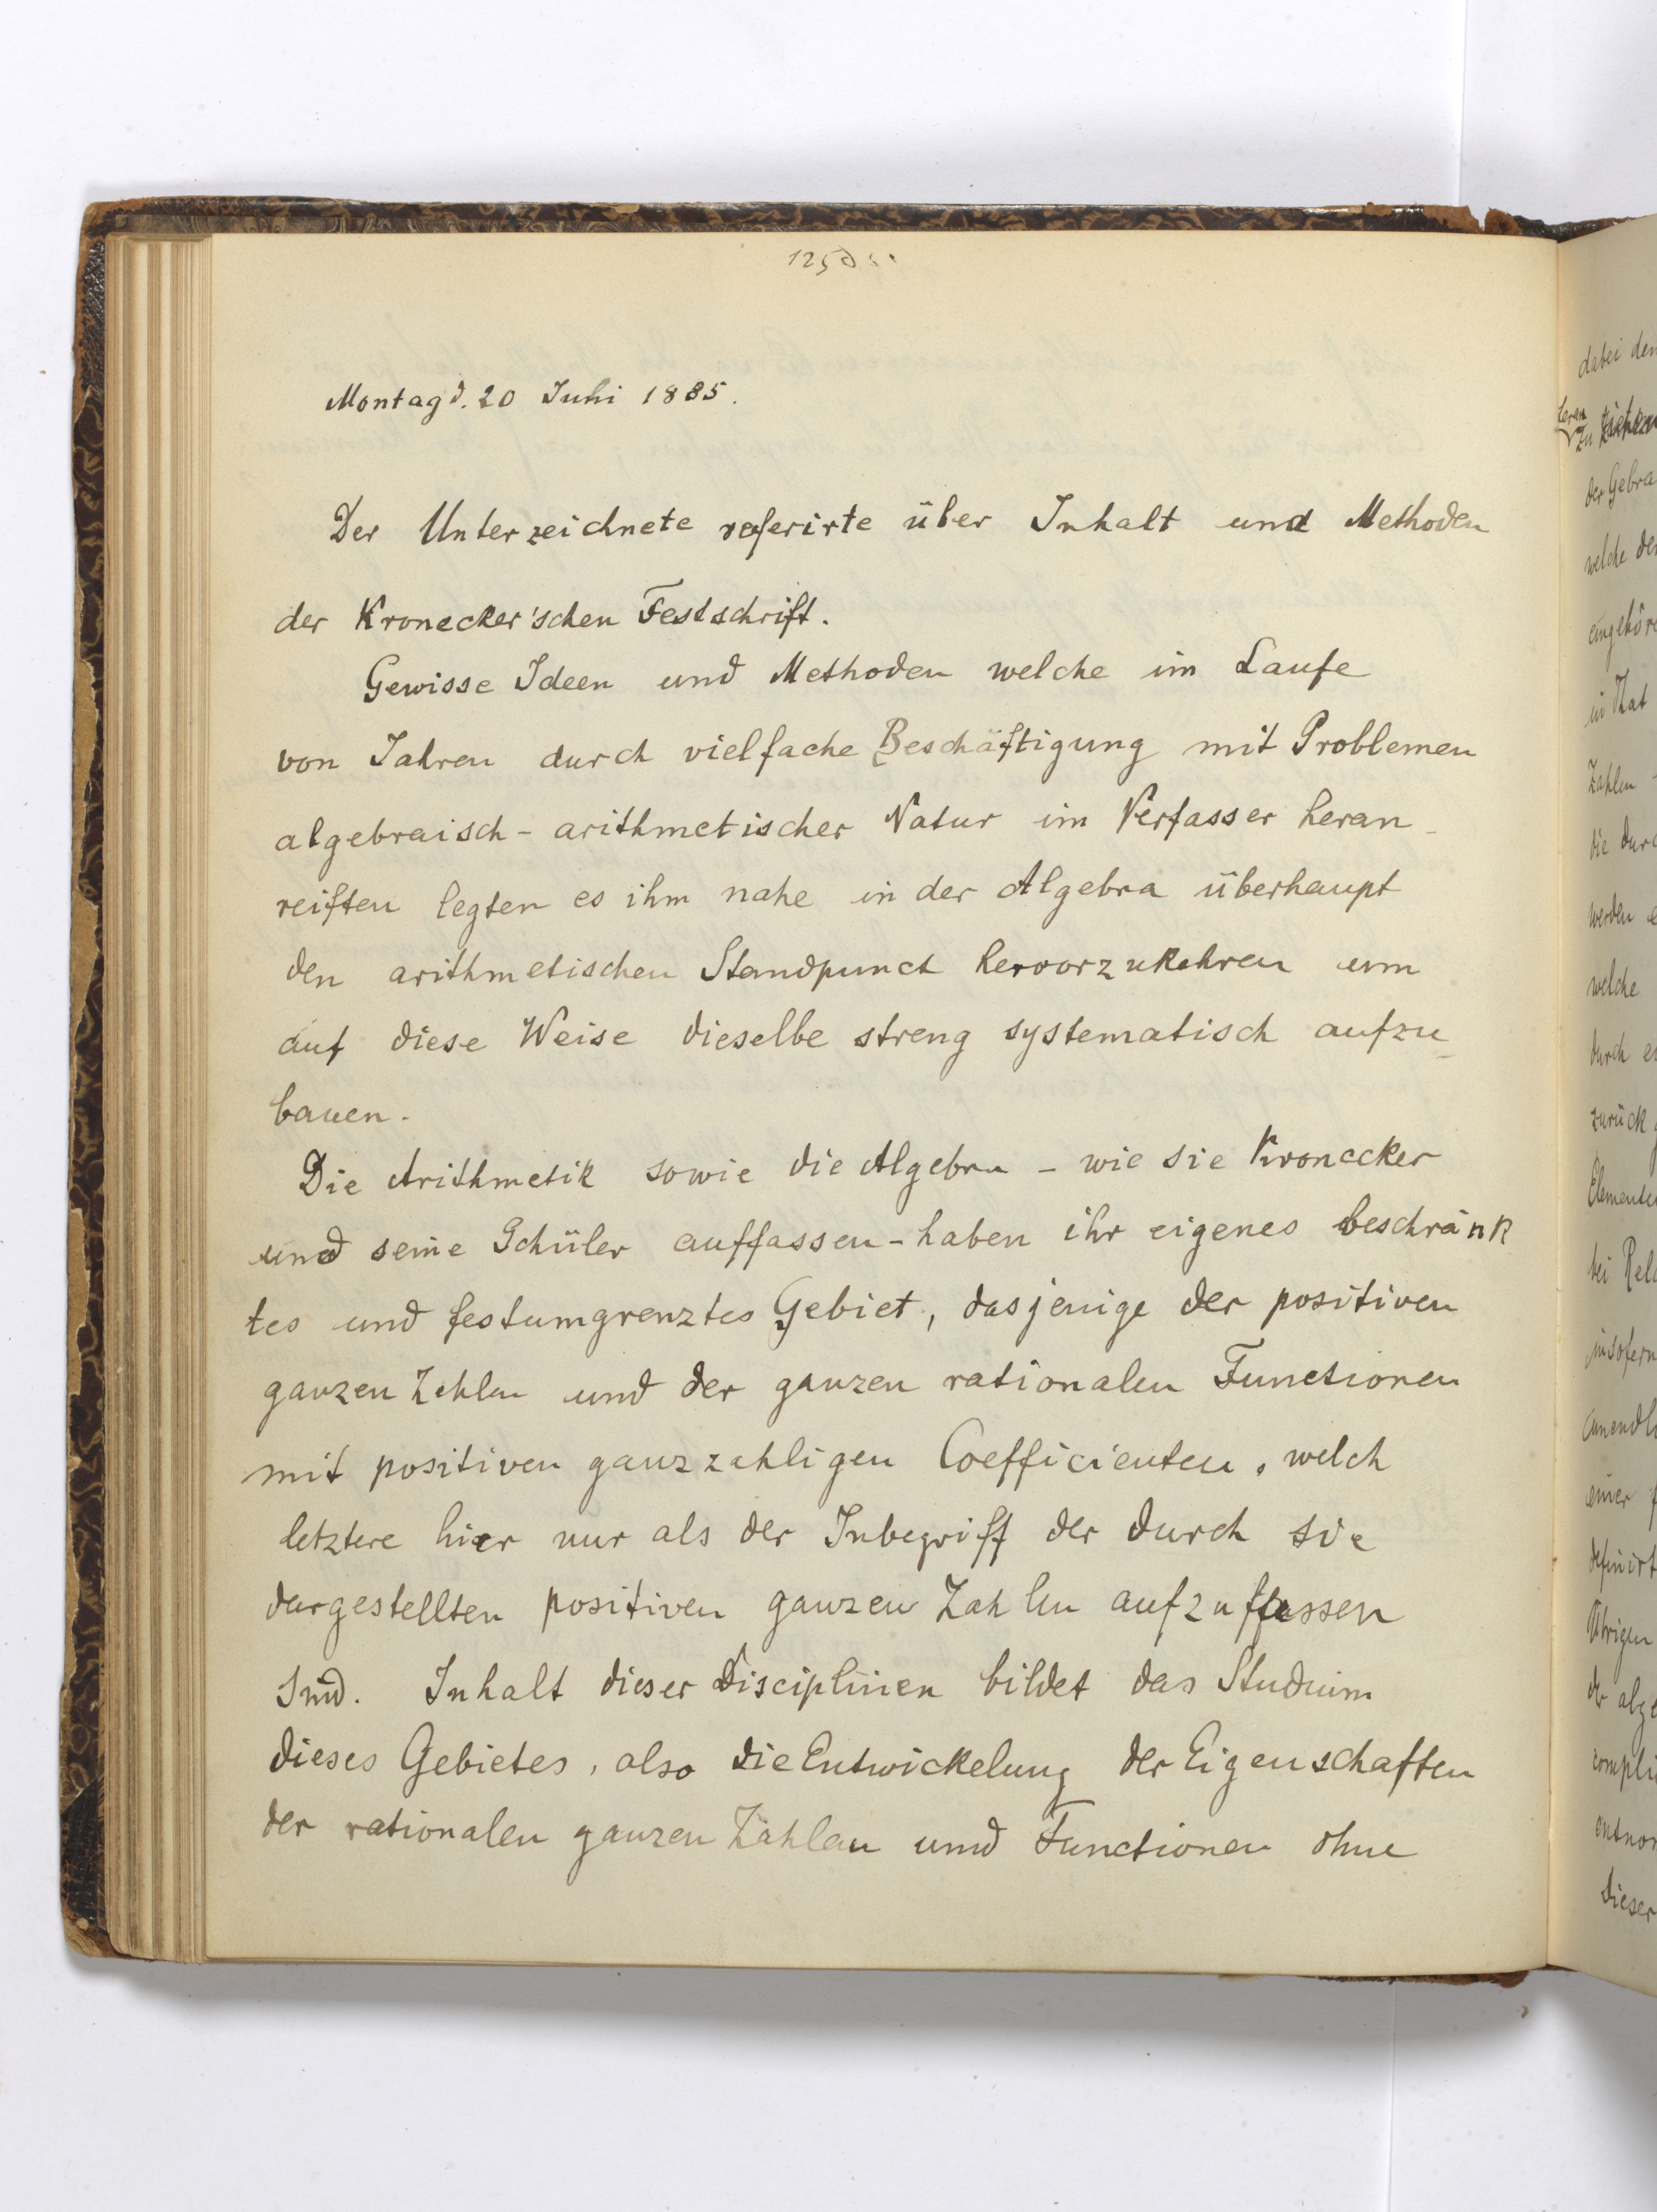 Montag d. 20 Juli 1885.
Der Unterzeichnete referirte über Inhalt und Methoden
der Kronecker'schen Festschrift.
Gewisse Ideen und Methoden welche im Laufe
von Jahren durch vielfache Beschäftigung mit Problemen
algebraisch-arithmetischer Natur im Verfasser heran-
reiften legten es ihm nahe in der Algebra überhaupt
den arithmetischen Standpunct hervorzukehren um
auf diese Weise dieselbe streng systematisch aufzu-
bauen.
Die Arithmetik sowie die Algebra - wie sie Kronecker
und seine Schüler auffassen - haben ihr eigenes beschränk
tes und festumgrenztes Gebiet, dasjenige der positiven
ganzen Zahlen und der ganzen rationalen Functionen
mit positiven ganzzahligen Coefficienten, welch
letztere hier nur als der Inbegriff der durch sie
dargestellten positiven ganzen Zahlen aufzufassen
sind. Inhalt dieser Disciplinen bildet das Studium
dieses Gebietes, also die Entwickelung der Eigenschaften
der rationalen ganzen Zahlen und Functionen ohne
dabei den
heran
zu
der Gebra
welche de
eingehör
in That
Zahlen
die durc
werden e
welche
durch e
zurück
Elemente
bei Rel
insofern
unendl
einer f
definirt
Übrigen
der abge
compli
entnom
dieser